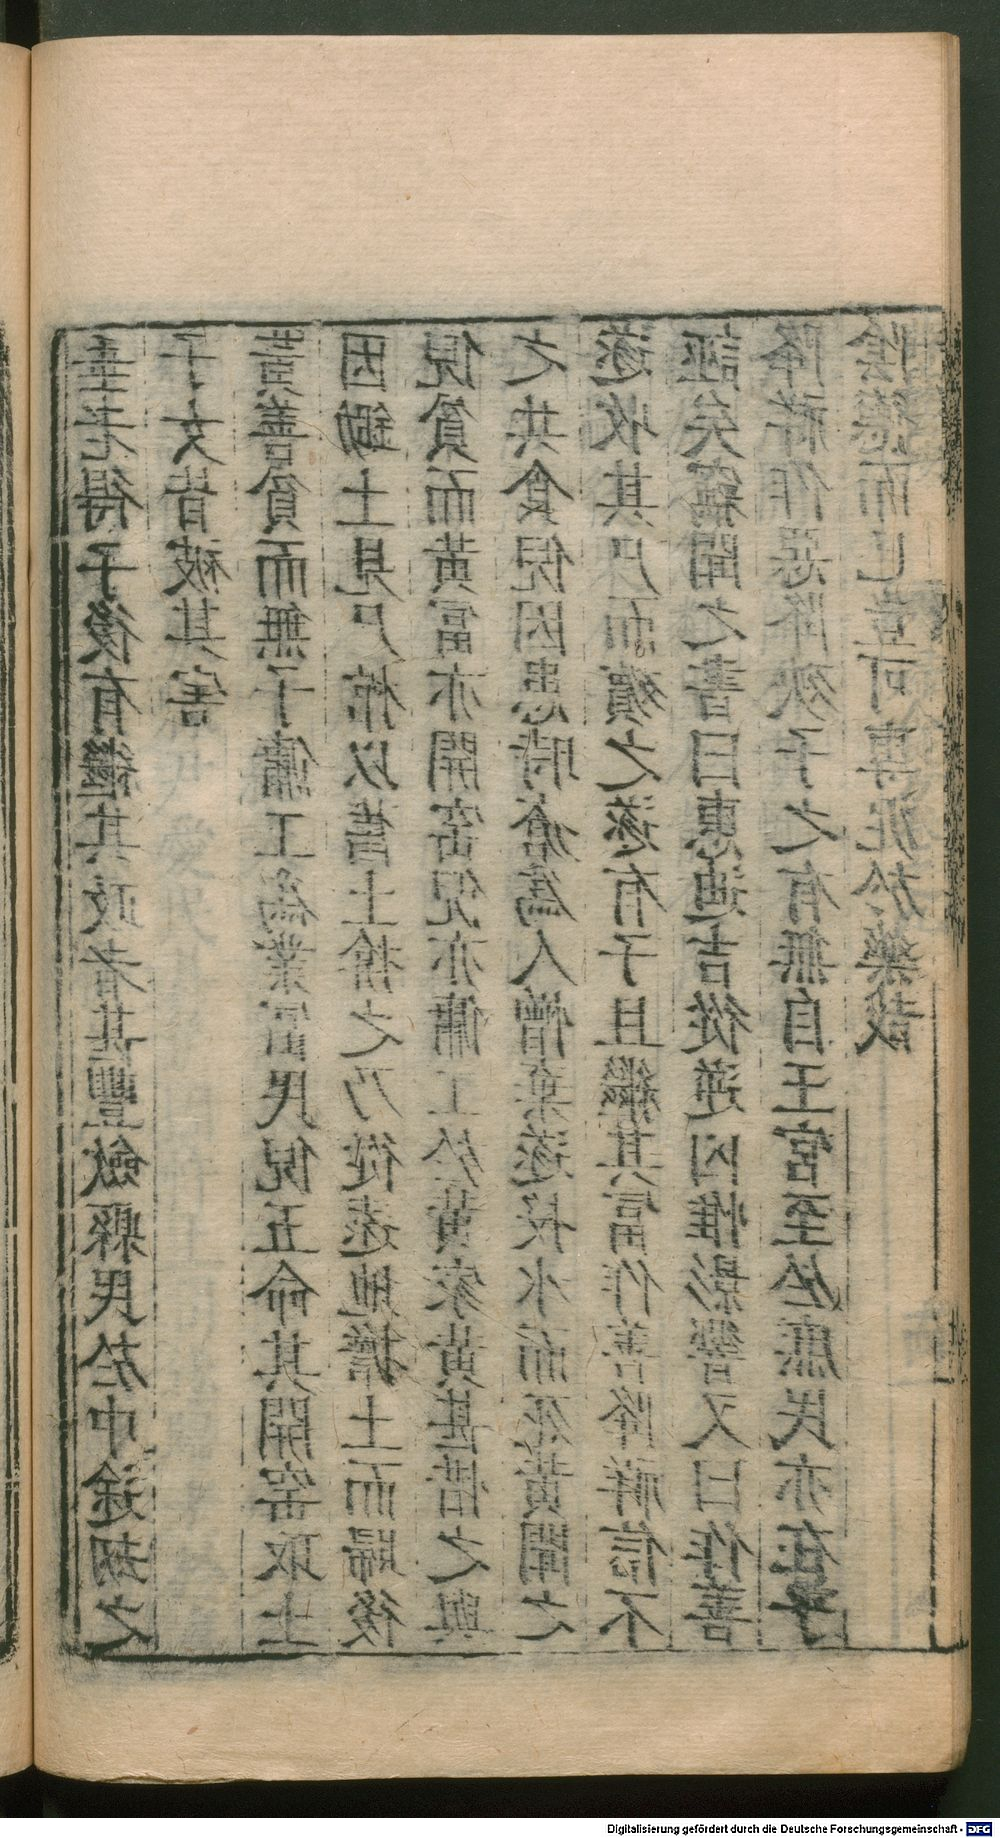 韋老得子後有繼其政者甚豐斂縣民於中途劫之
子女皆被其害
黃善貧而無子傭工為業富民倪五命其開窖取土
因鋤土見尸棺以舊土揜之乃從遠地擔土而歸後
倪貧而黃富亦開窖倪亦傭工於黃家黃甚惜之與
之共食倪因患時瘡為人憎棄遂投水而死黃聞之
遂收其尸而殯之遂有子且繼其富作善降祥信不
誣矣竊聞之書曰惠迪吉從逆凶惟影響又曰作善
降祥作惡降殃子之有無自王宮至於庶民亦在乎
陰德而已豈可專泥於藥哉
Digitalisierung gefördert durch die Deutsche Forschungsgemeinschaft - DFG